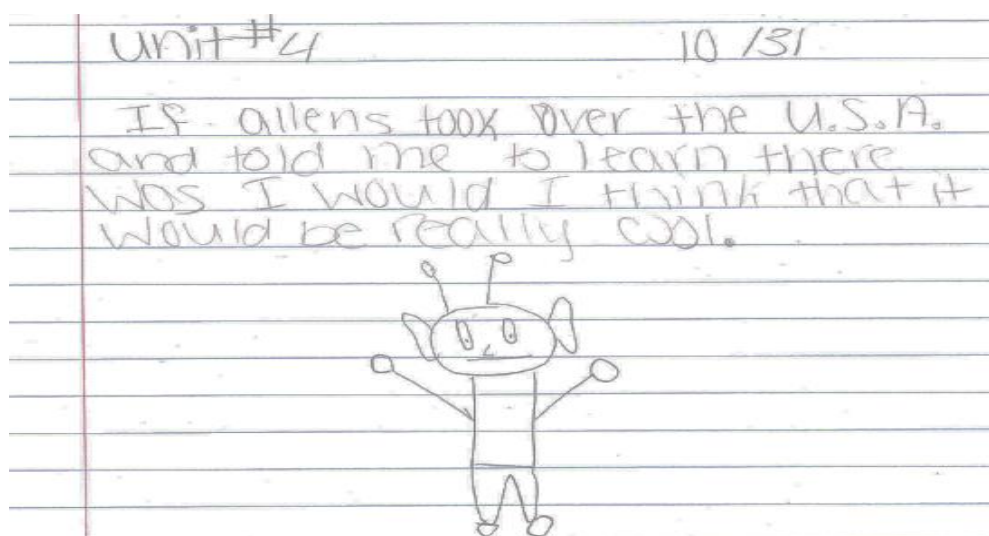 Unit #4 10/31
If aliens took over the U.S.A.
and told me to learn there
was I would I think that it
would be really cool.